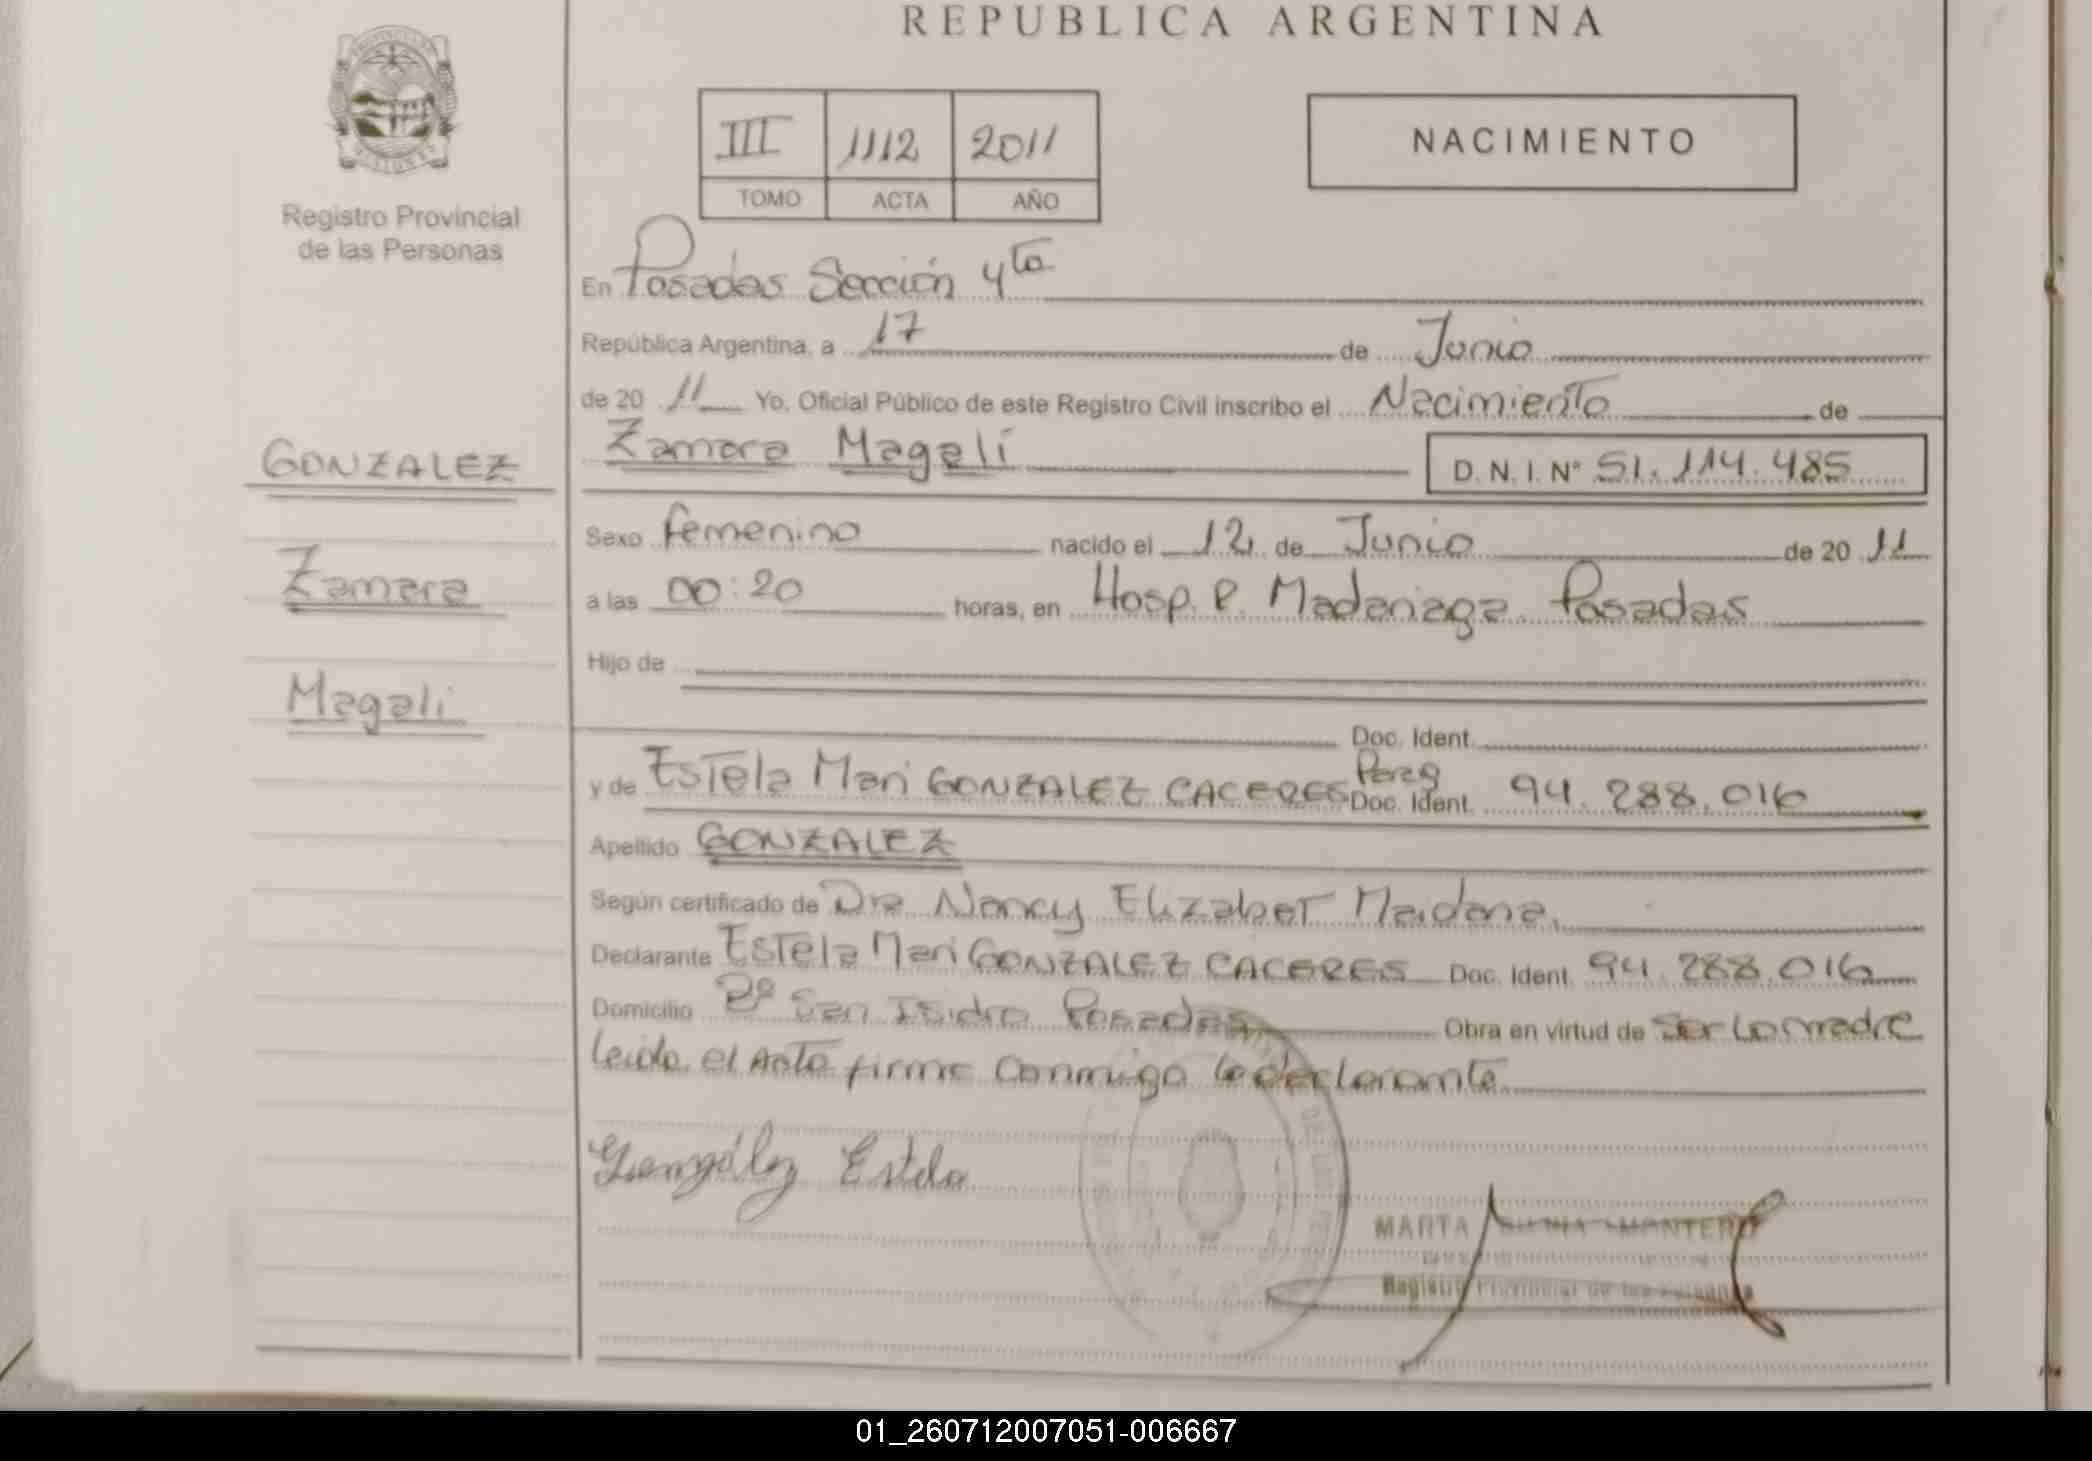 REPUBLICA ARGENTINA
III 1112 2011
TOMO ACTA AÑO
NACIMIENTO
Registro Provincial
de las Personas
GONZALEZ
Zamara
Magali
En Posadas Sección 4ta
República Argentina, a 17 de Junio
de 20 11 Yo, Oficial Público de este Registro Civil inscribo el Nacimiento de
Zamara Magali D. N. I. N° 51.114.485
Sexo femenino nacido el 12 de Junio de 20 11
a las 00:20 horas, en Hosp. R. Madariaga Posadas
Hijo de
Doc. Ident.
y de Estela Mari GONZALEZ CACERES Parag Doc. Ident. 94.288.016
Apellido GONZALEZ
Según certificado de Dra Nancy Elizabet Maidana.
Declarante Estela Mari GONZALEZ CACERES Doc. Ident. 94.288.016
Domicilio Bº San Isidro Posadas Obra en virtud de Ser la madre
leida el Acta firma conmigo la declarante
González Estela
MARTA MONTERO
Registro Provincial de las Personas
01_260712007051-006667